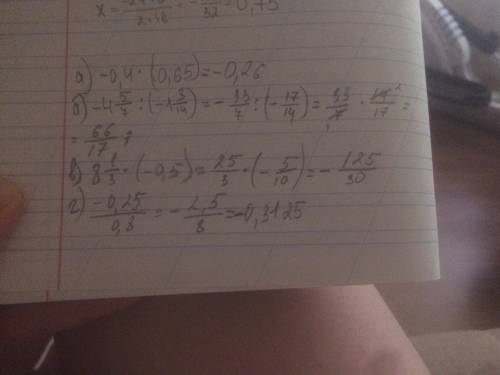 x = = 0,75
а) -0,4 · (0,65) = -0,26
б) -4 5/7 : (-1 3/14) = - 33/7 : (- 17/14) = 33/7 · 14/17 =
= 66/17 ;
в) 8 1/3 · (-0,5) = 25/3 · (- 5/10) = - 125/30
г) -0,25/0,8 = - 2,5/8 = -0,3125